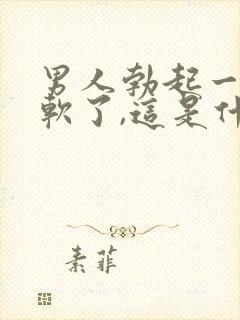 男人勃起一
軟了,這是什
素菲